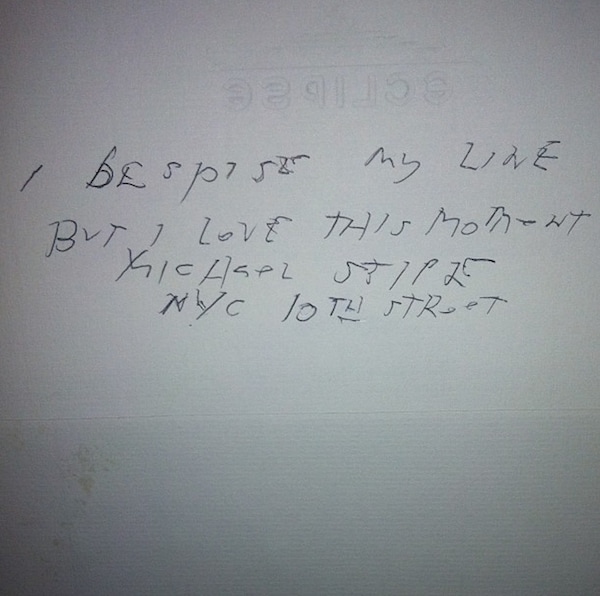 ECLIPSE
I DESPISE MY LINE
BUT I LOVE THIS MOMENT
MICHAEL STIPE
NYC 10TH STREET